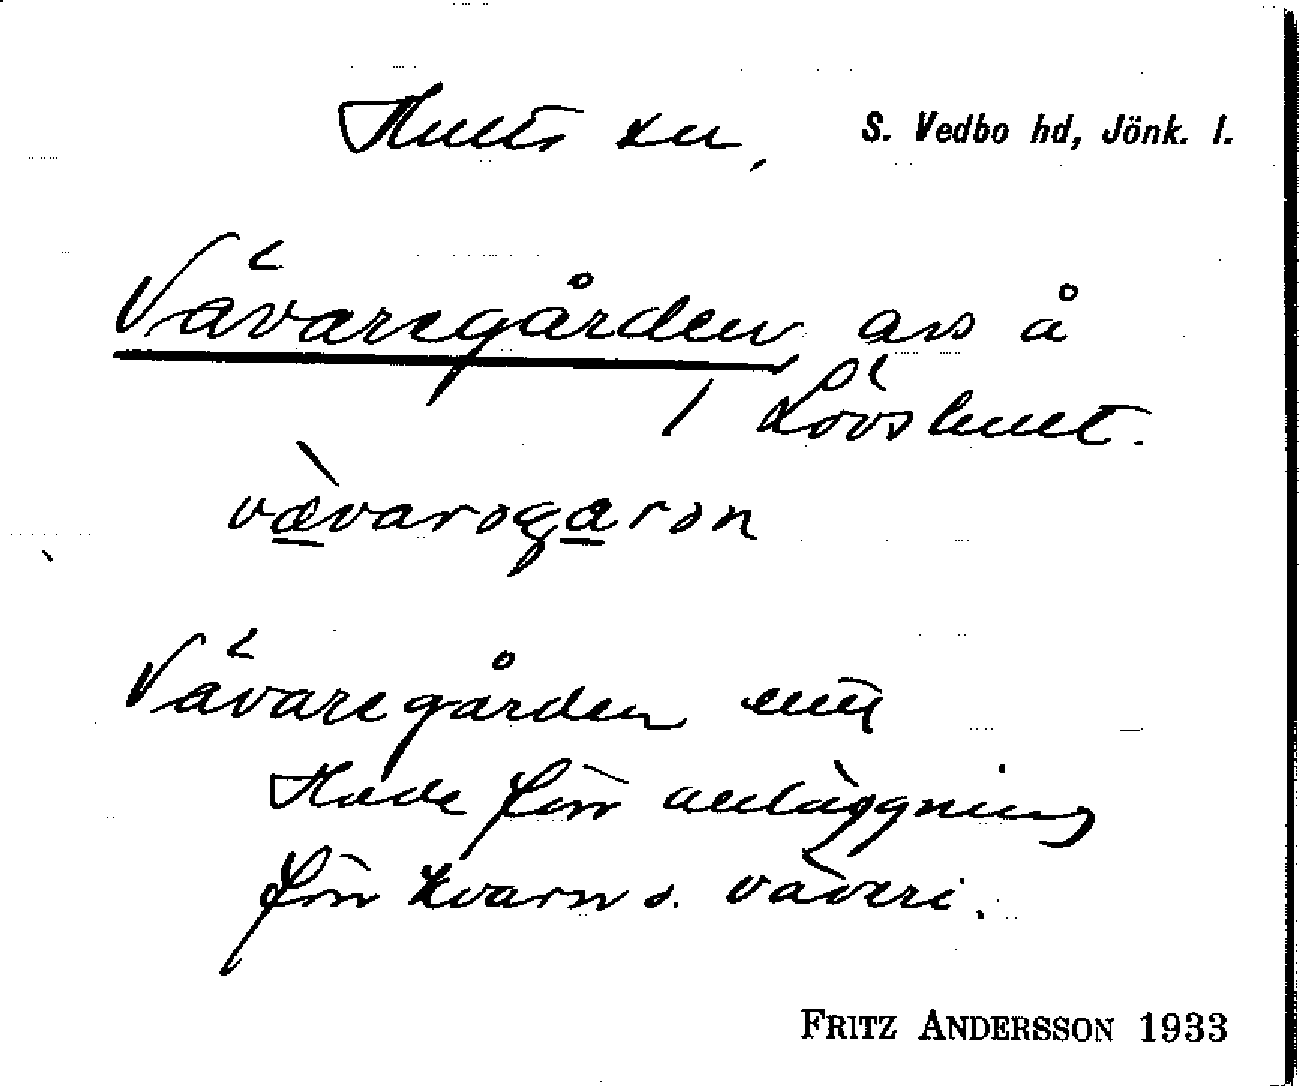 Hults sn, S. Vedbo hd, Jönk. l.
Vävaregården, avs å
/ Lövshult.
vævarəgarən
Vävaregården enl
Hade förr anläggning
för kvarn o. väveri.
FRITZ ANDERSSON 1933